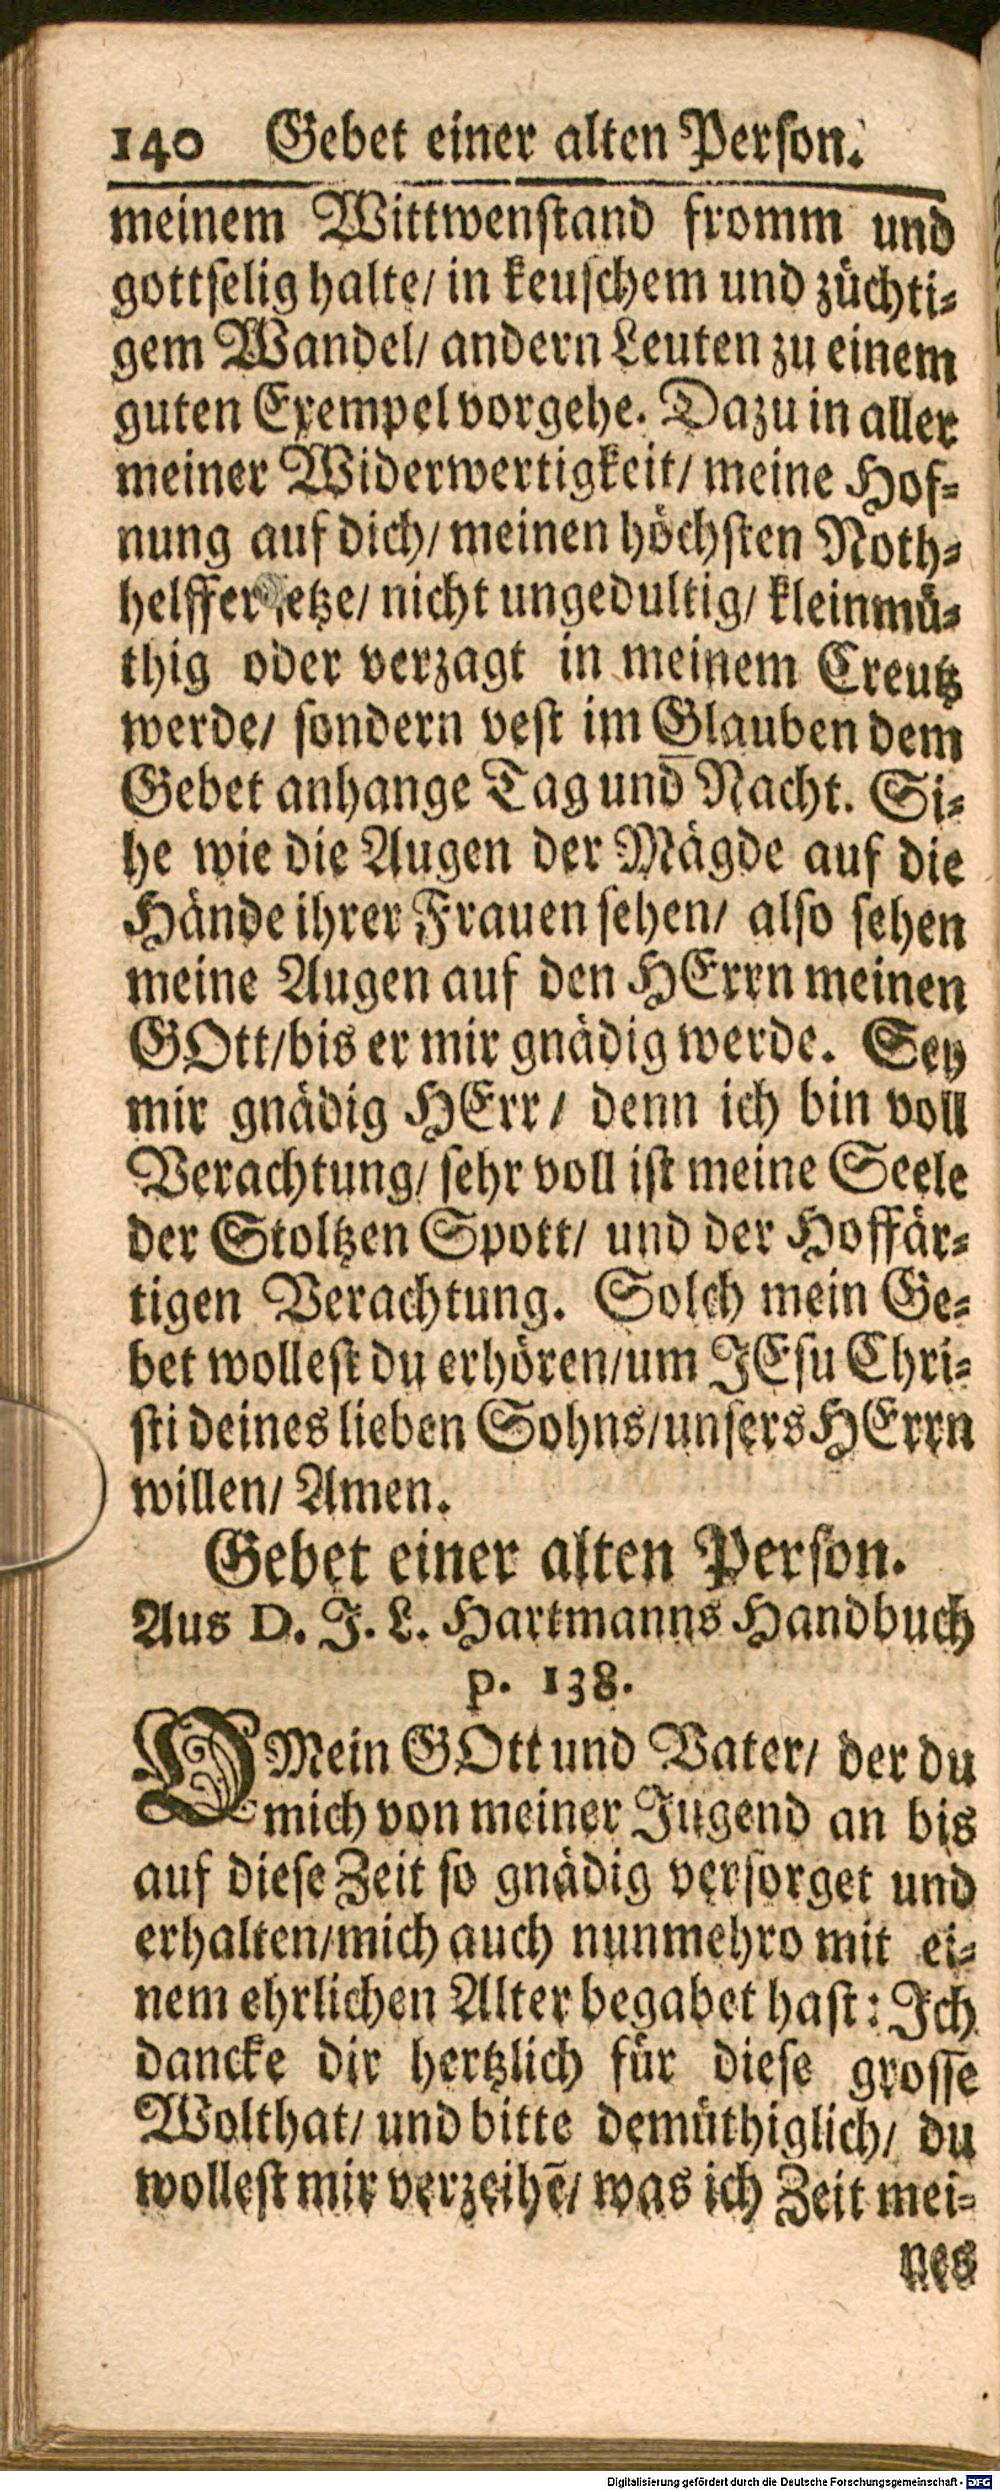 140 Gebet einer alten Person.
meinem Wittwenstand fromm und
gottselig halte/ in keuschem und züchti-
gem Wandel/ andern Leuten zu einem
guten Exempel vorgehe. Dazu in aller
meiner Widerwertigkeit/ meine Hof-
nung auf dich/ meinen höchsten Noth-
helffer setze/ nicht ungedultig/ kleinmü-
thig oder verzagt in meinem Creutz
werde/ sondern vest im Glauben dem
Gebet anhange Tag und Nacht. Si-
he wie die Augen der Mägde auf die
Hände ihrer Frauen sehen/ also sehen
meine Augen auf den HErrn meinen
GOtt/ bis er mir gnädig werde. Sey
mir gnädig HErr/ denn ich bin voll
Verachtung/ sehr voll ist meine Seele
der Stoltzen Spott/ und der Hoffär-
tigen Verachtung. Solch mein Ge-
bet wollest du erhören/ um JEsu Chri-
sti deines lieben Sohns/ unsers HErrn
willen/ Amen.
Gebet einer alten Person.
Aus D. J. L. Hartmanns Handbuch
p. 138.
O Mein GOtt und Vater/ der du
mich von meiner Jugend an bis
auf diese Zeit so gnädig versorget und
erhalten/ mich auch nunmehro mit ei-
nem ehrlichen Alter begabet hast: Ich
dancke dir hertzlich für diese grosse
Wolthat/ und bitte demüthiglich/ du
wollest mir verzeihē/ was ich Zeit mei-
nes
Digitalisierung gefördert durch die Deutsche Forschungsgemeinschaft - DFG